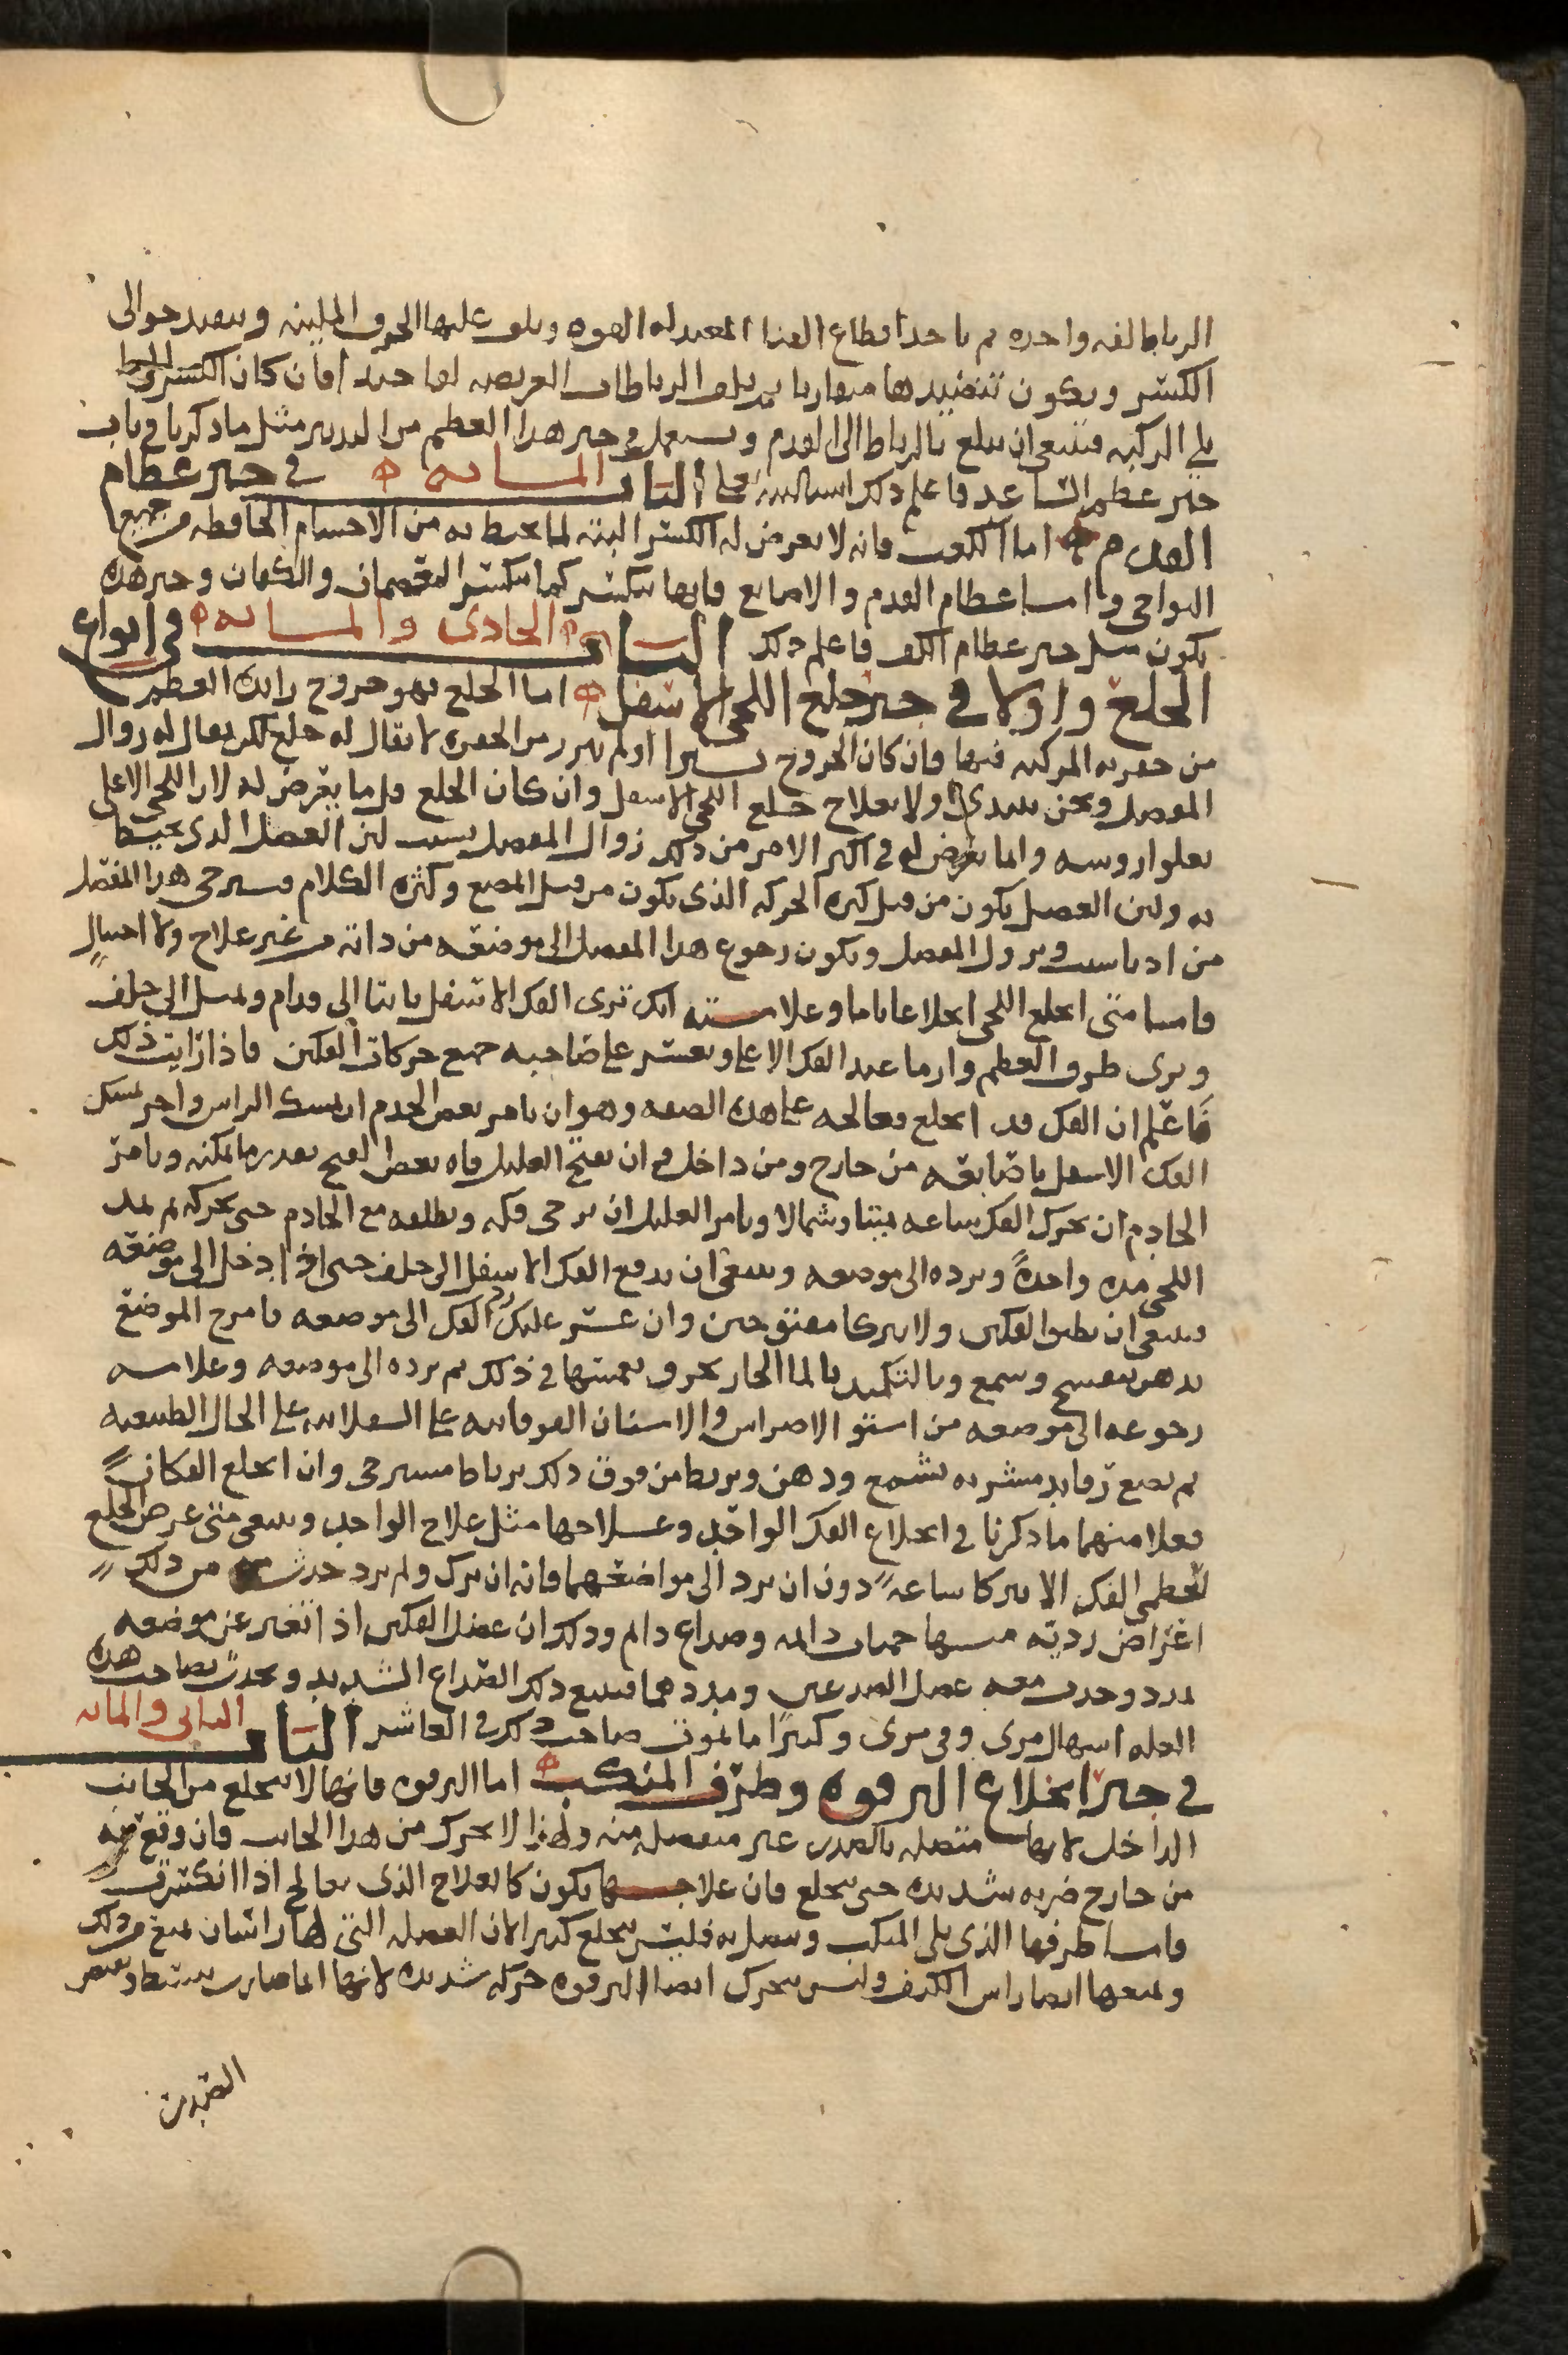 الرباط لفه واحده ثم ياخذ اقطاع القنا المعتدله القوه ويلف عليها الخرق اللينه ويصيرها حوالى
الكسر ويكون تنضيدها متقاربا ثم يلف الرباطات العريضه لفا جيدا فان كان الكسر
يلى الركبه فينبغى ان يبلغ بالرباط الى القدم ويستعمل فى جبر هذا العظم من التدبير مثل ما ذكرنا فى باب
جبر عظم الساعد فاعلم ذلك ان شا الله تعالى الباب الماىه فى جبر عظام
القدم اما الكعب فانه لا يعرض له الكسر البته لما يحيط به من الاجسام الحافظه من جميع
النواحى واما عظام القدم والاصابع فانها تنكسر كما تنكسر والكفان وجبر هذه
يكون مثل جبر عظام الكف فاعلم ذلك الباب الحادى والمايه فى انواع
الخلع واولا فى جبر خلع اللحى الاسفل اما الخلع فهو خروج زايده العظم
من حفرته المركبه فيها فان كان الخروج يسيرا او لم يبرز من الحفره لا يقال له خلع لكن يقال له زوال
المفصل ونحن نبتدى اولا بعلاج خلع اللحى الاسفل وان كان الخلع قل ما يعرض له لان اللحى الاعلى
يعلوا روسه وانما يعرض له فى اكثر الامر من ذلك زوال المفصل بسبب لين العضل الذى يحيط
به ولين العضل يكون من قبل كثره الحركه الذى يكون من قبل المضغ وكثره الكلام فيسترخى هذا المفصل
من ادنا سبب ويزول المفصل ويكون رجوع هذا المفصل الى موضعه من ذاته من غير علاج ولا احتيال
فاما متى انخلع اللحى انخلاعا تاما وعلامته انك ترى الفك الاسفل ناتيا الى قدام ويميل الى خلف
وترى طرف العظم وارما عند الفك الاعلى ويعسر على صاحبه جميع حركات الفكين فاذا رايت ذلك
فاعلم ان الفك قد انخلع فعالجه على هذه الصفه وهو ان تامر بعض الخدم ان يمسك الراس واخر يمسك
الفك الاسفل باصابعه من خارج ومن داخل فم ان يفتح العليل فاه بعض الفتح بقدر ما يمكنه وتامر
الخادم ان يحرك الفك ساعه يمينا وشمالا وتامر العليل ان يرخى فكه ويطلقه مع الخادم حتى يحركه ثم يمد
اللحى مده واحدةً ويرده الى موضعه وينبغى ان يدفع الفك الاسفل الى خلف حتى اذا دخل الى موضعه
فينبغى ان يطبق الفكين ولا يتركا مفتوحين وان عسر عليك رد الفك الى موضعه فامرخ الموضع
بدهن بنفسج وشمع وبالتكميد بالما الحار بخرق تغمسها فى ذلك ثم يرده الى موضعه وعلامه
رجوعه الى موضعه من استو الاضراس والاسنان الفوقانيه على السفلانيه على الحال الطبيعيه
ثم يضع رفايد مشربه بشمع ودهن ويربط من فوق ذلك برباط مسترخى وان انخلع الفكان
فعلامتهما ما ذكرنا فى انخلاع الفك الواحد وعلاجها مثل علاج الواحد وينبغى متى عرض الخلع
لعظمى الفك الا يتركا ساعةً دون ان يرد الى مواضعهما فانه ان ترك ولم يرد حدث من ذلك
اعراض رديه منها حميات دايمه وصداع دايم وذلك ان عضل الفكين اذا تغير عن موضعه
تمدد وحدث معه عضل الصدغين ومددهما فيتبع ذلك الصداع الشديد ويحدث بصاحب هذه
العله اسهال مرى وقى مرى وكثيرًا ما يموت صاحب ذلك فى العاشر الباب الثانى والمايه
فى جبر انخلاع الترقوه وطرف المنكب اما الترقوه فانها لا تنخلع من الجانب
الداخل لانها متصله بالصدر غير منفصله منه ولهذا لا تتحرك من هذا الجانب فان وقع فيه
من خارج ضربه شديده حتى تنخلع فان علاجها يكون كالعلاج الذى يعالج اذا انكسرت
واما طرفها الذى يلى المنكب ويتصل به فليس ينخلع كثيرا لان العضله التى لها راسان تمنع من ذلك
ويمنعها ايضا راس الكتف وليس يتحرك ايضا الترقوه حركه شديده لانها انما صارت
الصدر